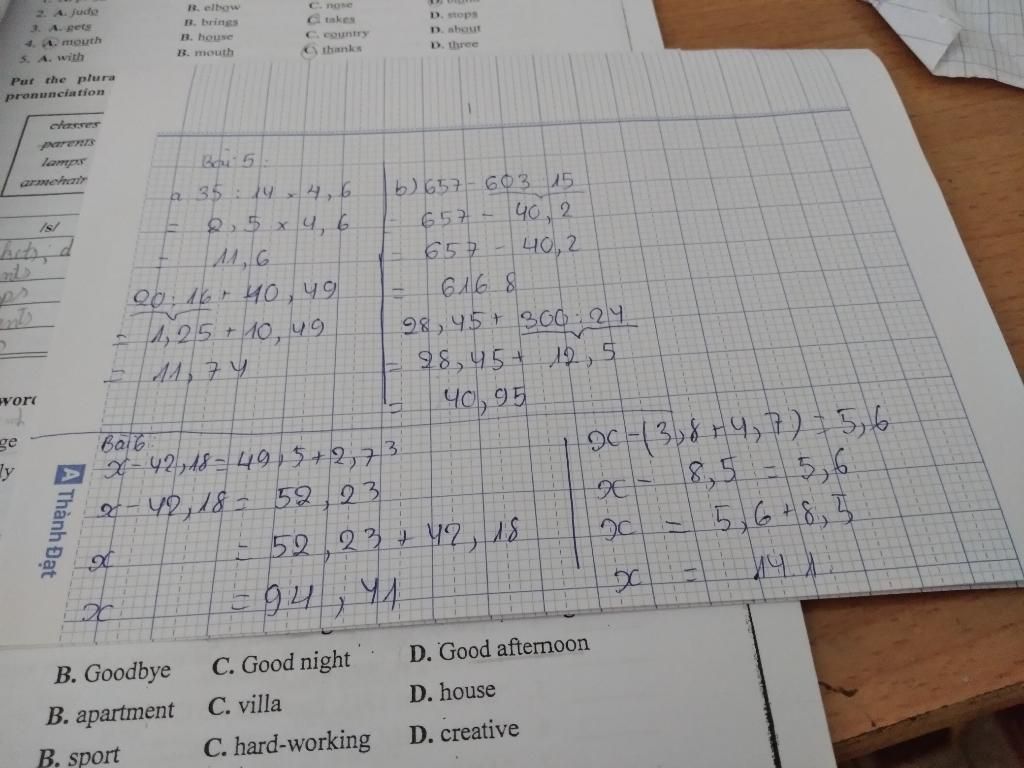 2. A. judo B. elbow C. nose
3. A. gets B. brings C. takes D. stops
4. A. mouth B. house C. country D. about
5. A. with B. mouth C. thanks D. three
Put the plura
pronunciation
classes
parents
lamps
armchair
/s/
wor
ge
ly
Bài 5:
a 35 : 14 × 4,6
= 2,5 × 4,6
= 11,6
20 : 16 + 10,49
= 1,25 + 10,49
= 11,74
b) 657 - 603 : 15
= 657 - 40,2
= 657 - 40,2
= 616 8
28,45 + 300 : 24
= 28,45 + 12,5
= 40,95
Bài 6:
x - 42,18 = 49,5 + 2,73
x - 42,18 = 52,23
x = 52,23 + 42,18
x = 94,41
x - (3,8 + 4,7) = 5,6
x - 8,5 = 5,6
x = 5,6 + 8,5
x = 14.1
A Thành Đạt
B. Goodbye C. Good night D. Good afternoon
B. apartment C. villa D. house
B. sport C. hard-working D. creative